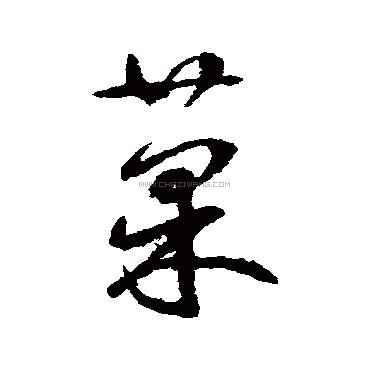 菓
WWW.CHAZIWANG.COM